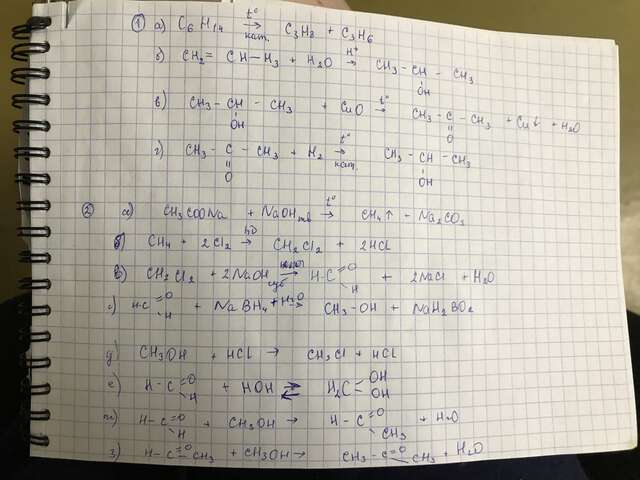 ① а) C₆H₁₄ →(t° кат.) C₃H₈ + C₃H₆
б) CH₂ = CH–H₃ + H₂O →(H⁺) CH₃ – CH(OH) – CH₃
в) CH₃ – CH(OH) – CH₃ + CuO →(t°) CH₃ – C(=O) – CH₃ + Cu↓ + H₂O
г) CH₃ – C(=O) – CH₃ + H₂ →(t° кат.) CH₃ – CH(OH) – CH₃
② а) CH₃COONa + NaOH тв →(t°) CH₄↑ + Na₂CO₃
б) CH₄ + 2Cl₂ →(hν) CH₂Cl₂ + 2HCl
в) CH₂Cl₂ + 2NaOH → HC(=O)H + 2NaCl + H₂O
HC(=O)H + NaBH₄ + H₂O → CH₃–OH + NaH₂BO₃
д) CH₃OH + HCl → CH₃Cl + HCl
е) H–C(=O)H + HOH ⇄ H₂C(OH)OH
H–C(=O)H + CH₃OH → H–C(=O)CH₃ + H₂O
з) H–C(=O)CH₃ + CH₃OH → CH₃–C(=O)CH₃ + H₂O